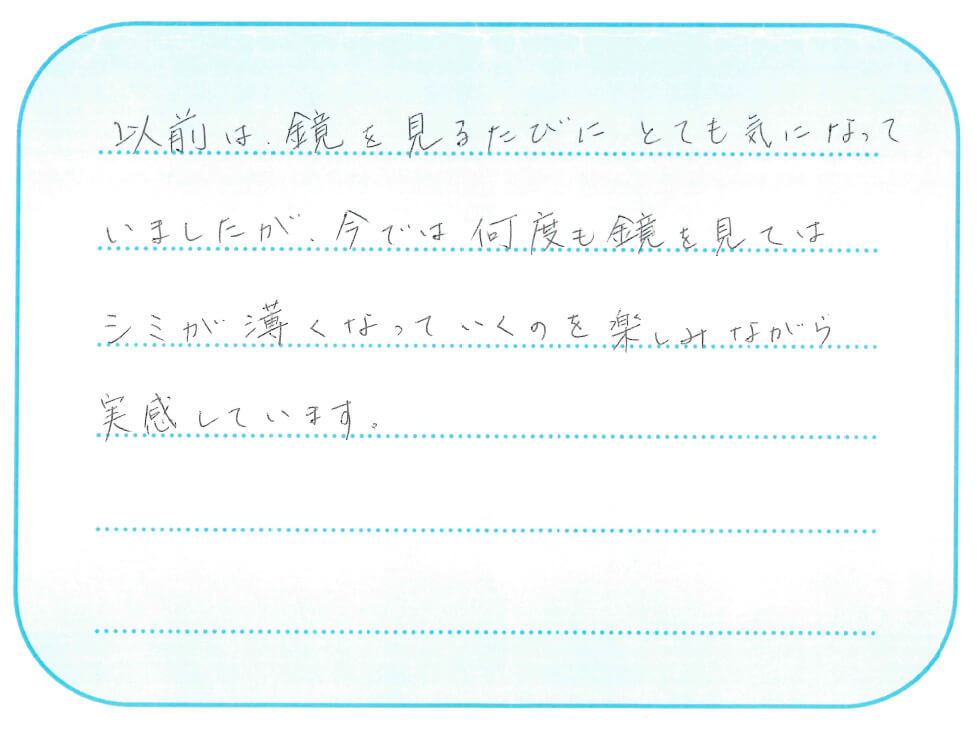 以前は、鏡を見るたびにとても気になって
いましたが、今では何度も鏡を見ては
シミが薄くなっていくのを楽しみながら
実感しています。